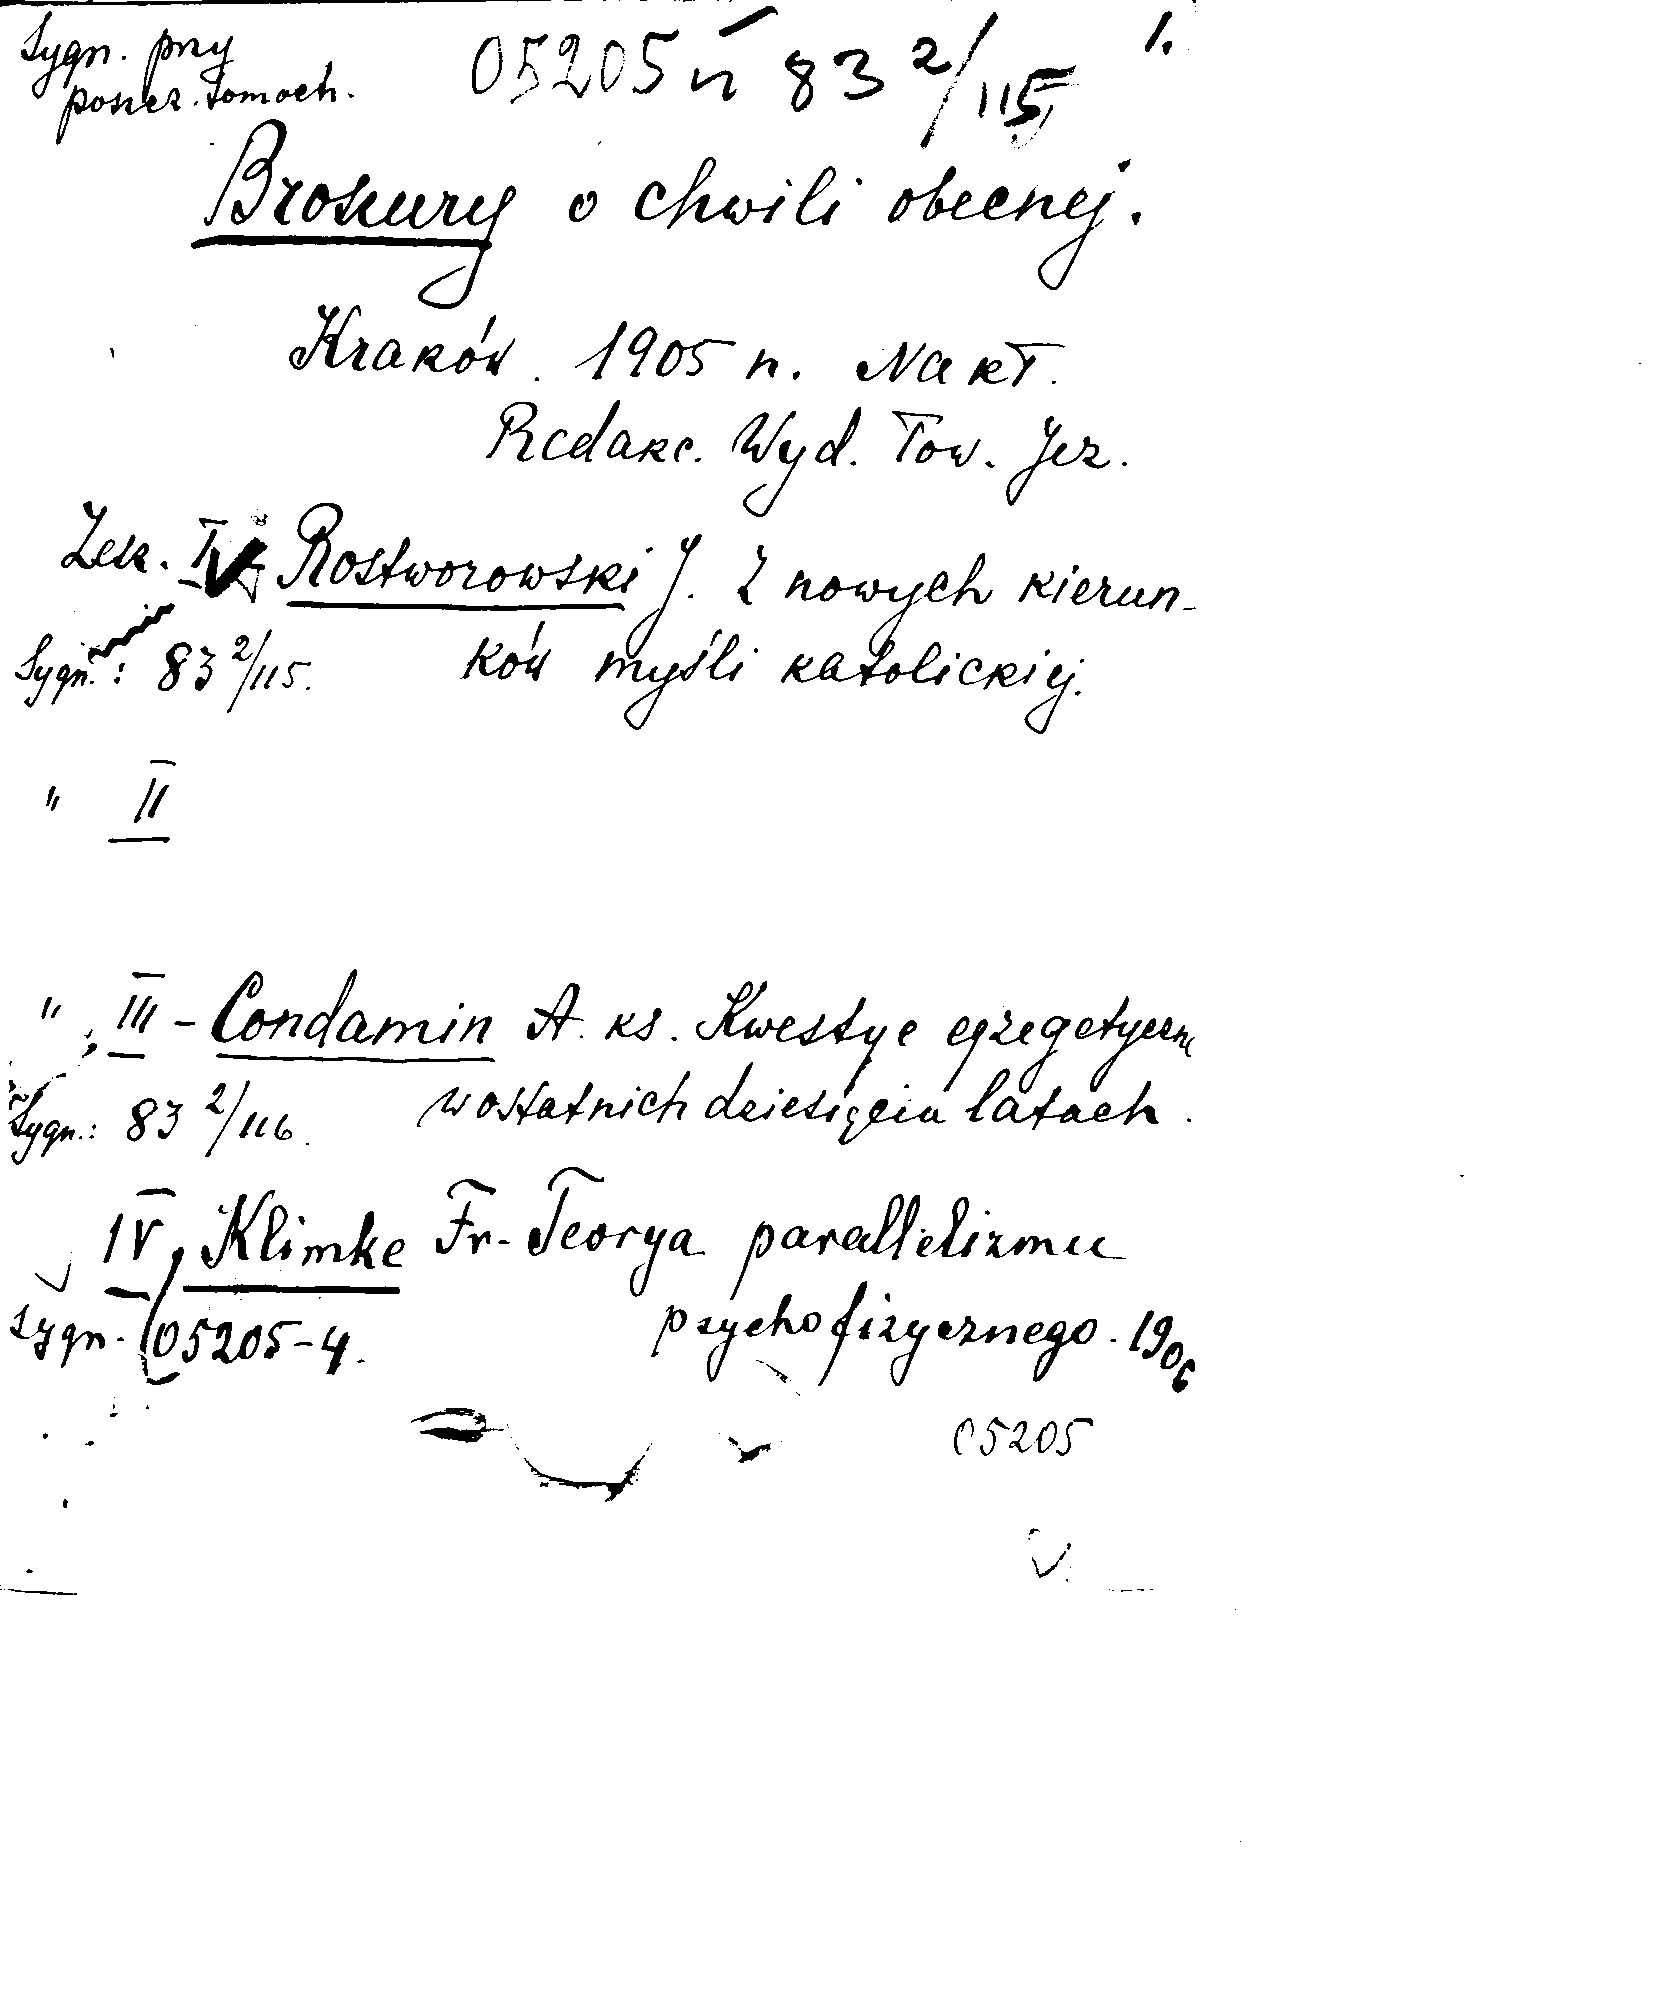 Sygn. przy 05205 n 83 2/115 1.
poszcz. tomach.
Broszury o chwili obecnej.
Kraków. 1905 r. Nakł.
Redakc. Wyd. Tow. Jez.
Zesz. I Rostworowski J. Z nowych kierun-
Sygn.: 83 2/115. ków myśli katolickiej.
" II
" III - Condamin A. ks. Kwestye egzegetyczne
Sygn.: 83 2/116. w ostatnich dziesięciu latach.
IV, Klimke Fr. Teorya parallelizmu
Sygn. 05205-4. psychofizycznego. 1906
05205